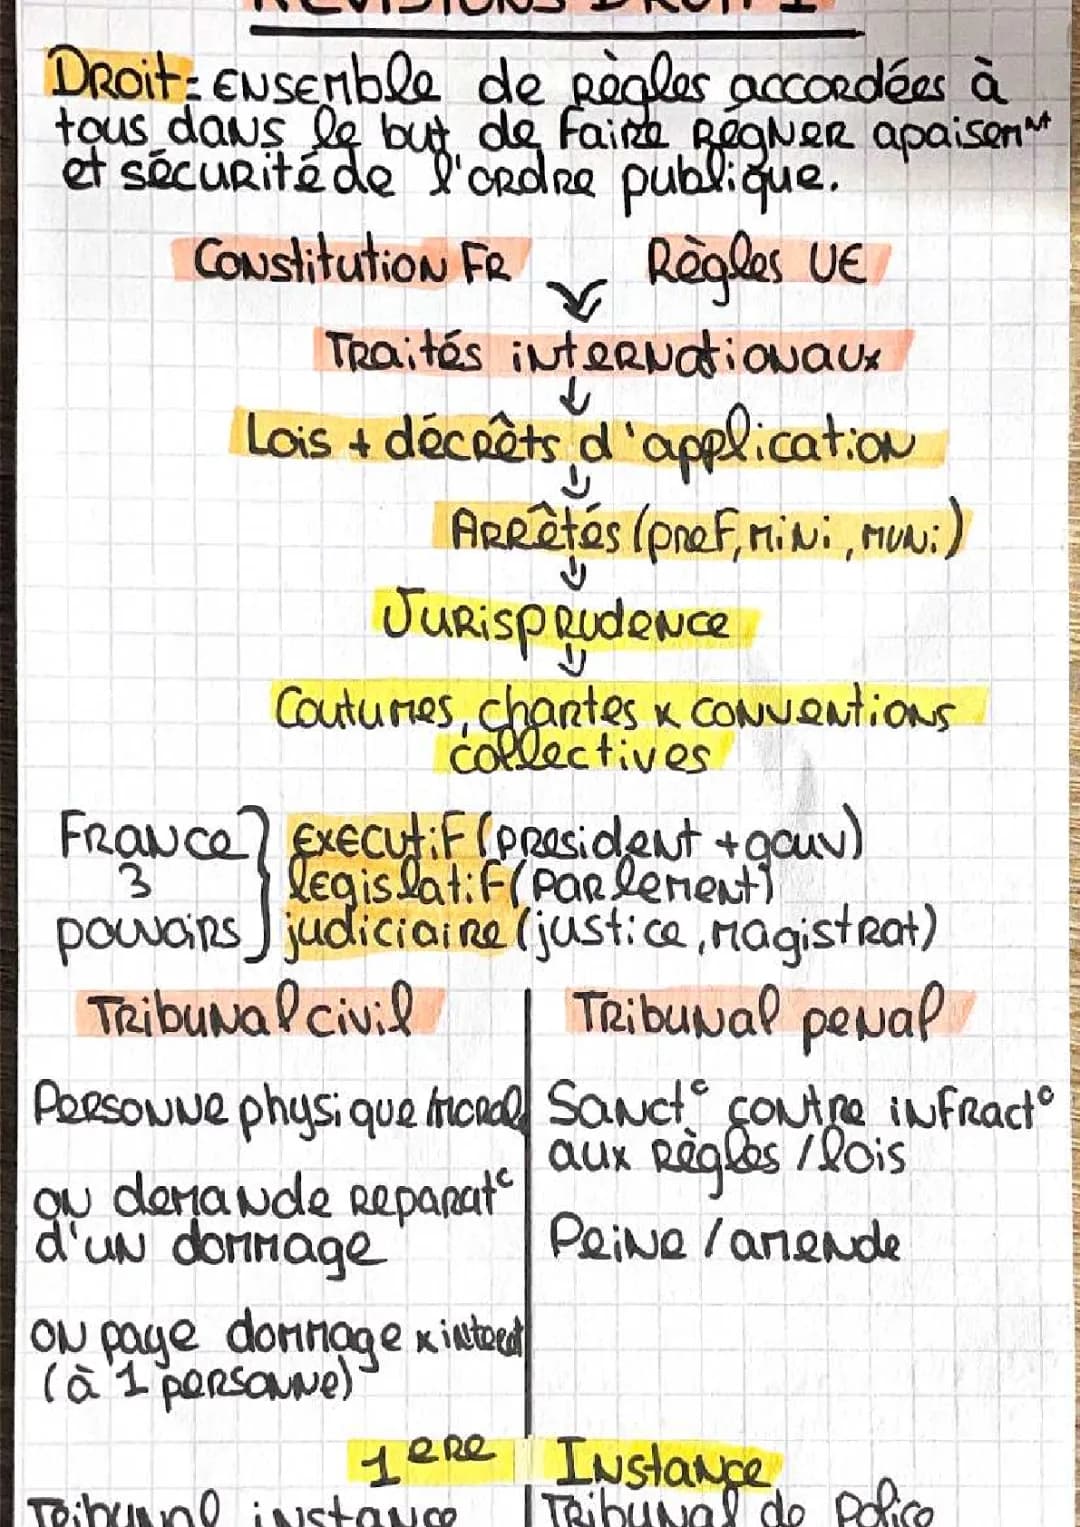 RÉVISIONS DROIT 1
Droit = Ensemble de règles accordées à
tous dans le but de faire régner apaisemnt
et sécurité de l'ordre publique.
Constitution FR Règles UE
Traités internationaux
↓
Lois + décrêts d'application
↓
Arrêtés (pref, mini, muni)
↓
Jurisprudence
↓
Coutumes, chartes x conventions
collectives
France } executif (president + gouv)
3 legislatif (Parlement)
pouvoirs judiciaire (justice, magistrat)
Tribunal civil Tribunal penal
Personne physique/moral Sanct° contre infract°
aux règles / lois
on demande reparat°
d'un dommage Peine / amende
on paye dommage x interet
(à 1 personne)
1ere Instance
Tribunal instance Tribunal de Police